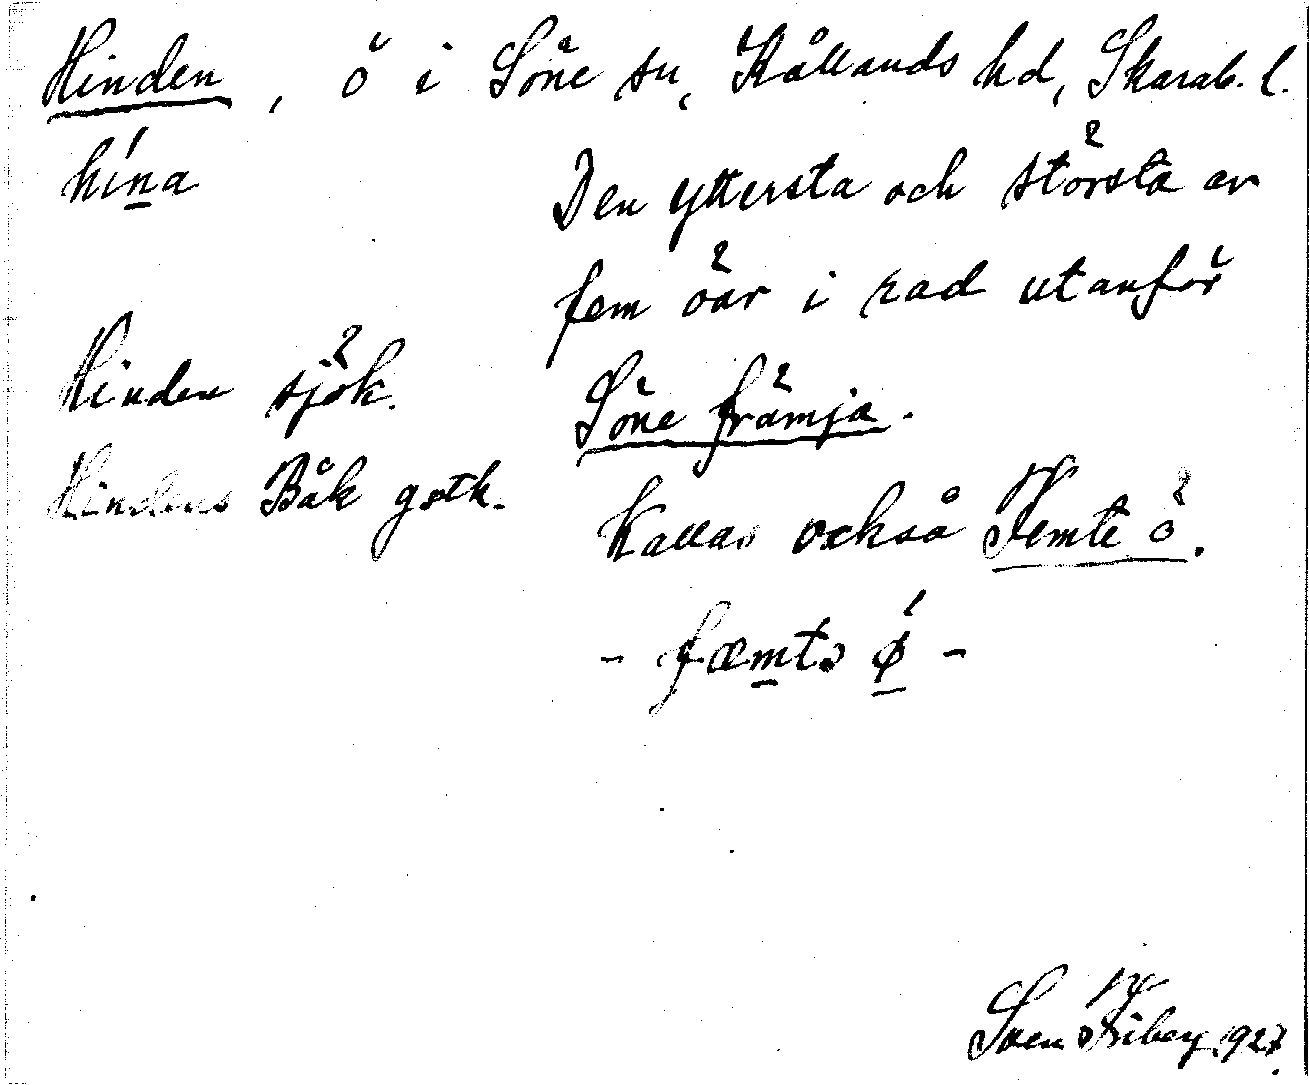 Hinden, ö i Söne sn, Kållands hd, Skarab. l.
hína
Den yttersta och största av
fem öar i rad utanför
Söne främja.
Hinden sjök.
Hindens Båk gstk.
Kallas också Femte ö.
- fæmtə ǿ -
Sven Friberg 1927.